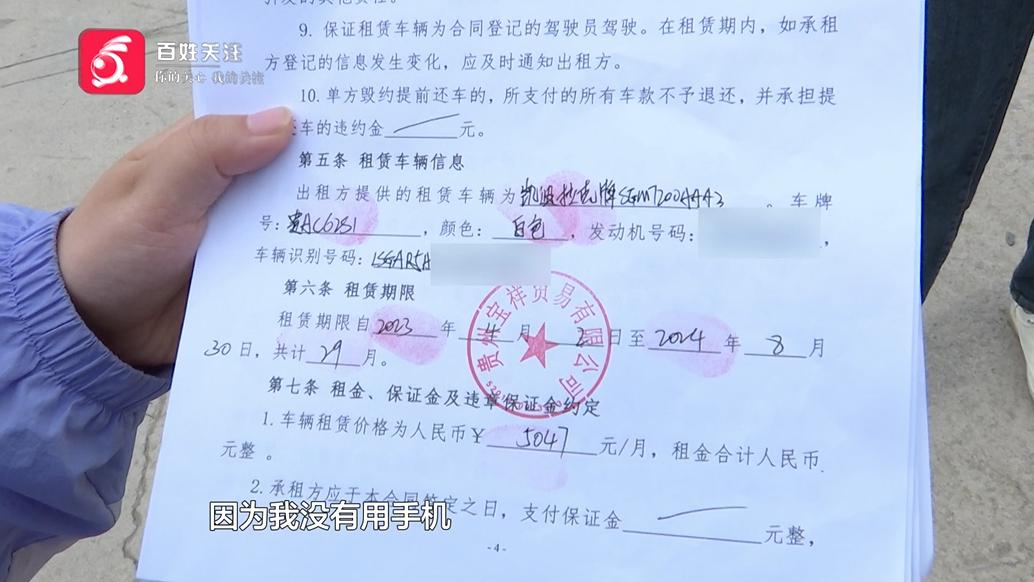 百姓关注
你的关心 我的关注
9. 保证租赁车辆为合同登记的驾驶员驾驶。在租赁期内，如承租
方登记的信息发生变化，应及时通知出租方。
10. 单方毁约提前还车的，所支付的所有车款不予退还，并承担提
车的违约金 元。
第五条 租赁车辆信息
出租方提供的租赁车辆为凯迪拉克牌SGM7200AAA3 。车牌
号: 贵AC62S1 ，颜色: 白色 ，发动机号码:
，
车辆识别号码: LSGAR5A
第六条 租赁期限
租赁期限自 2023 年 4 月 2 日至 2024 年 8 月
30 日，共计 29 月。
贵州宝祥贸易有限公司
第七条 租金、保证金及违章保证金约定
1. 车辆租赁价格为人民币¥ 5047 元/月，租金合计人民币
元整 。
2. 承租方应于本合同签定之日，支付保证金 元整，
因为我没有用手机
-4-